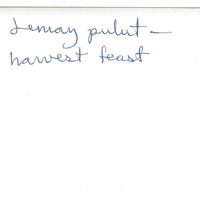 Lemay pulut —
harvest feast